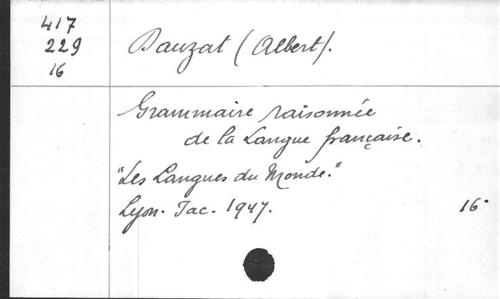 417
229
16
Dauzat (Albert).
Grammaire raisonnée
de la Langue française.
"Les Langues du Monde."
Lyon. Iac. 1947.
16°